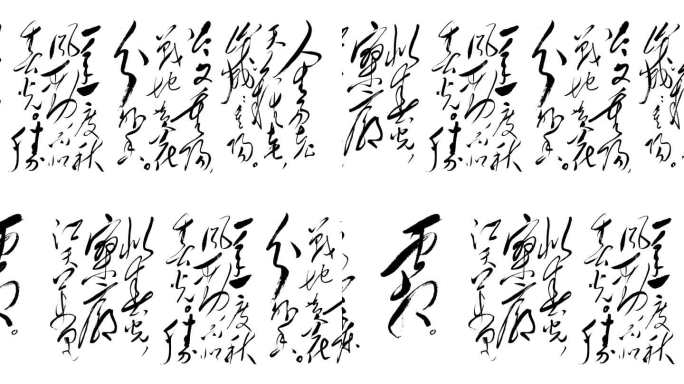 人生易老
天难老,
岁岁重阳。
今又重阳,
战地黄花
分外香。
一年一度秋
风劲不似
春光。胜
岁岁重阳。
今又重阳,
战地黄花
分外香。
一年一度秋
风劲不似
春光。胜
似春光,
寥廓
战地黄花
分外香。
一年一度秋
风劲不似
春光。胜
似春光,
寥廓
江天万里
霜。
一年一度秋
风劲不似
春光。胜
似春光,
寥廓
江天万里
霜。